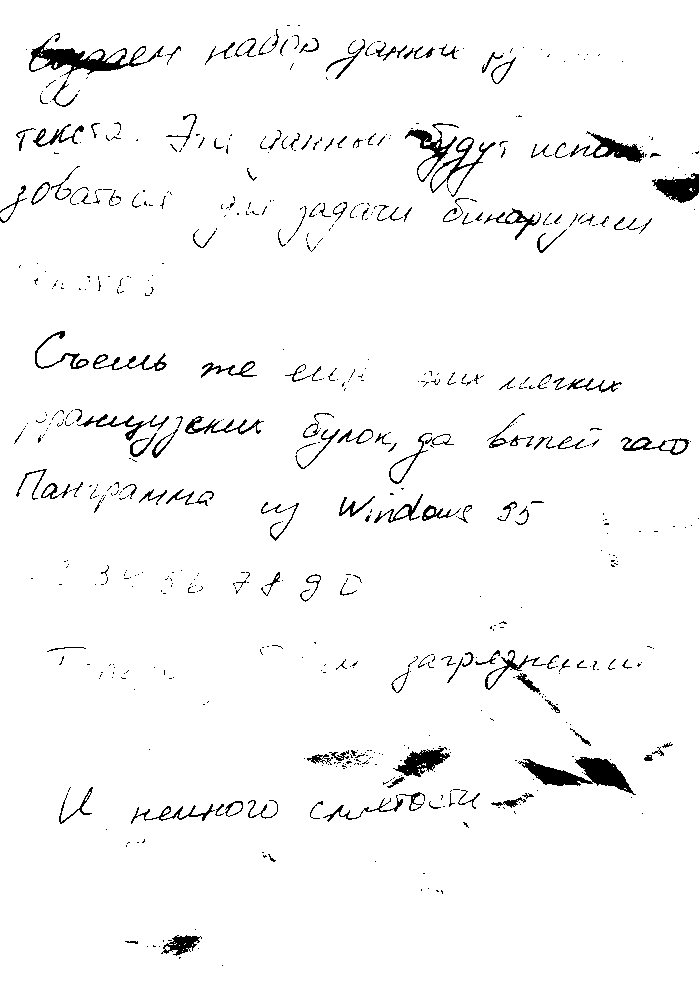 Создаем набор данных
текста. Эти данные будут исполь-
зоваться для задачи бинаризации
Съешь же ещё этих мягких
французских булок, да выпей чаю
Панграмма из Windows 95
34567890
загрязнений
И немного смятости